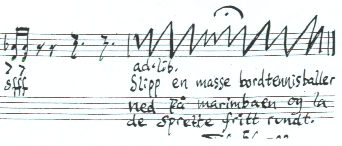 ad.lib.
sfff
Slipp en masse bordtennisballer
ned på marimbaen og la
de sprette fritt rundt.